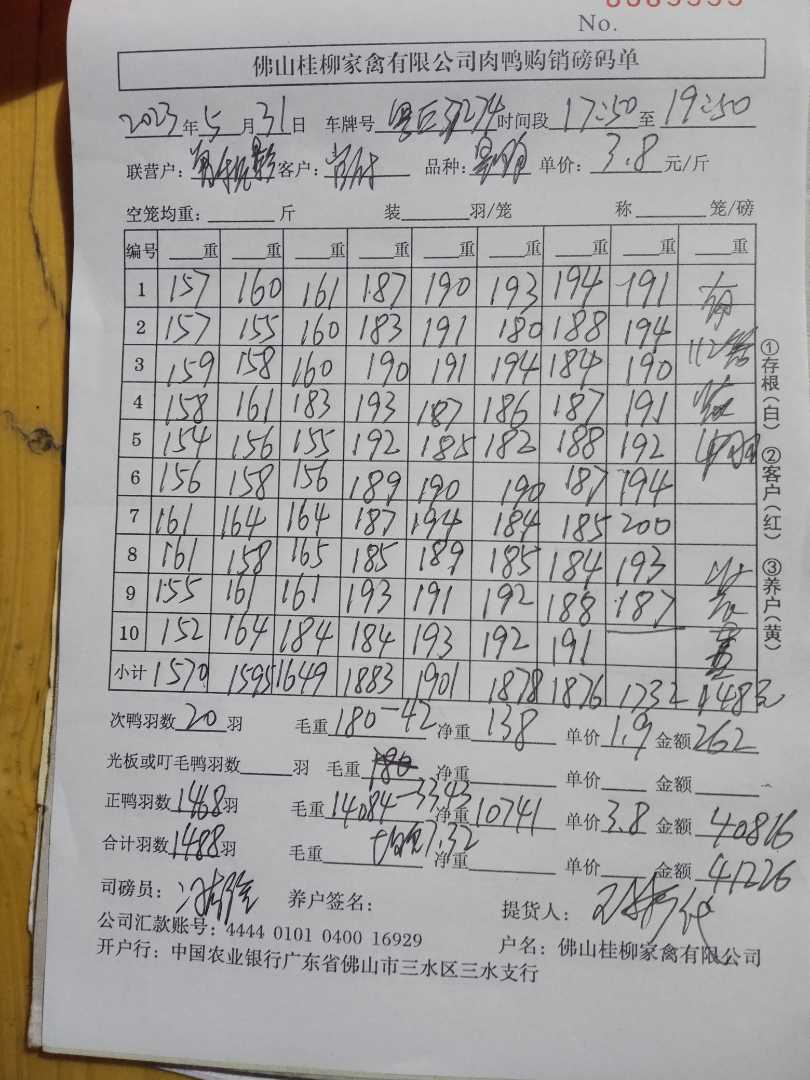 No.
佛山桂柳家禽有限公司肉鸭购销磅码单
2023年5月31日 车牌号 时间段 17:50 至 19:50
联营户: 客户: 品种: 单价: 3.8 元/斤
空笼均重: 斤 装 羽/笼 称 笼/磅
编号 重 重 重 重 重 重 重 重 重
1 157 160 161 187 190 193 194 191
2 157 155 160 183 191 180 188 194
3 159 158 160 190 191 194 184 190
4 158 161 183 193 187 186 187 191
5 154 156 155 192 185 182 188 192
6 156 158 156 189 190 190 187 194
7 161 164 164 187 194 184 185 200
8 161 158 165 185 189 185 184 193
9 155 161 161 193 191 192 188 187
10 152 164 184 184 193 192 191
小计 1570 1595 1649 1883 1901 1878 1876 1732
①存根(白) ②客户(红) ③养户(黄)
次鸭羽数 20 羽 毛重 180-42 净重 138 单价 1.9 金额 262
光板或叮毛鸭羽数 羽 毛重 180 净重 单价 金额
正鸭羽数 1468 羽 毛重 14084-3343 净重 10741 单价 3.8 金额 40816
合计羽数 1488 羽 毛重 7.32 净重 单价 金额 41226
司磅员: 养户签名: 提货人:
公司汇款账号: 4444 0101 0400 16929 户名: 佛山桂柳家禽有限公司
开户行: 中国农业银行广东省佛山市三水区三水支行